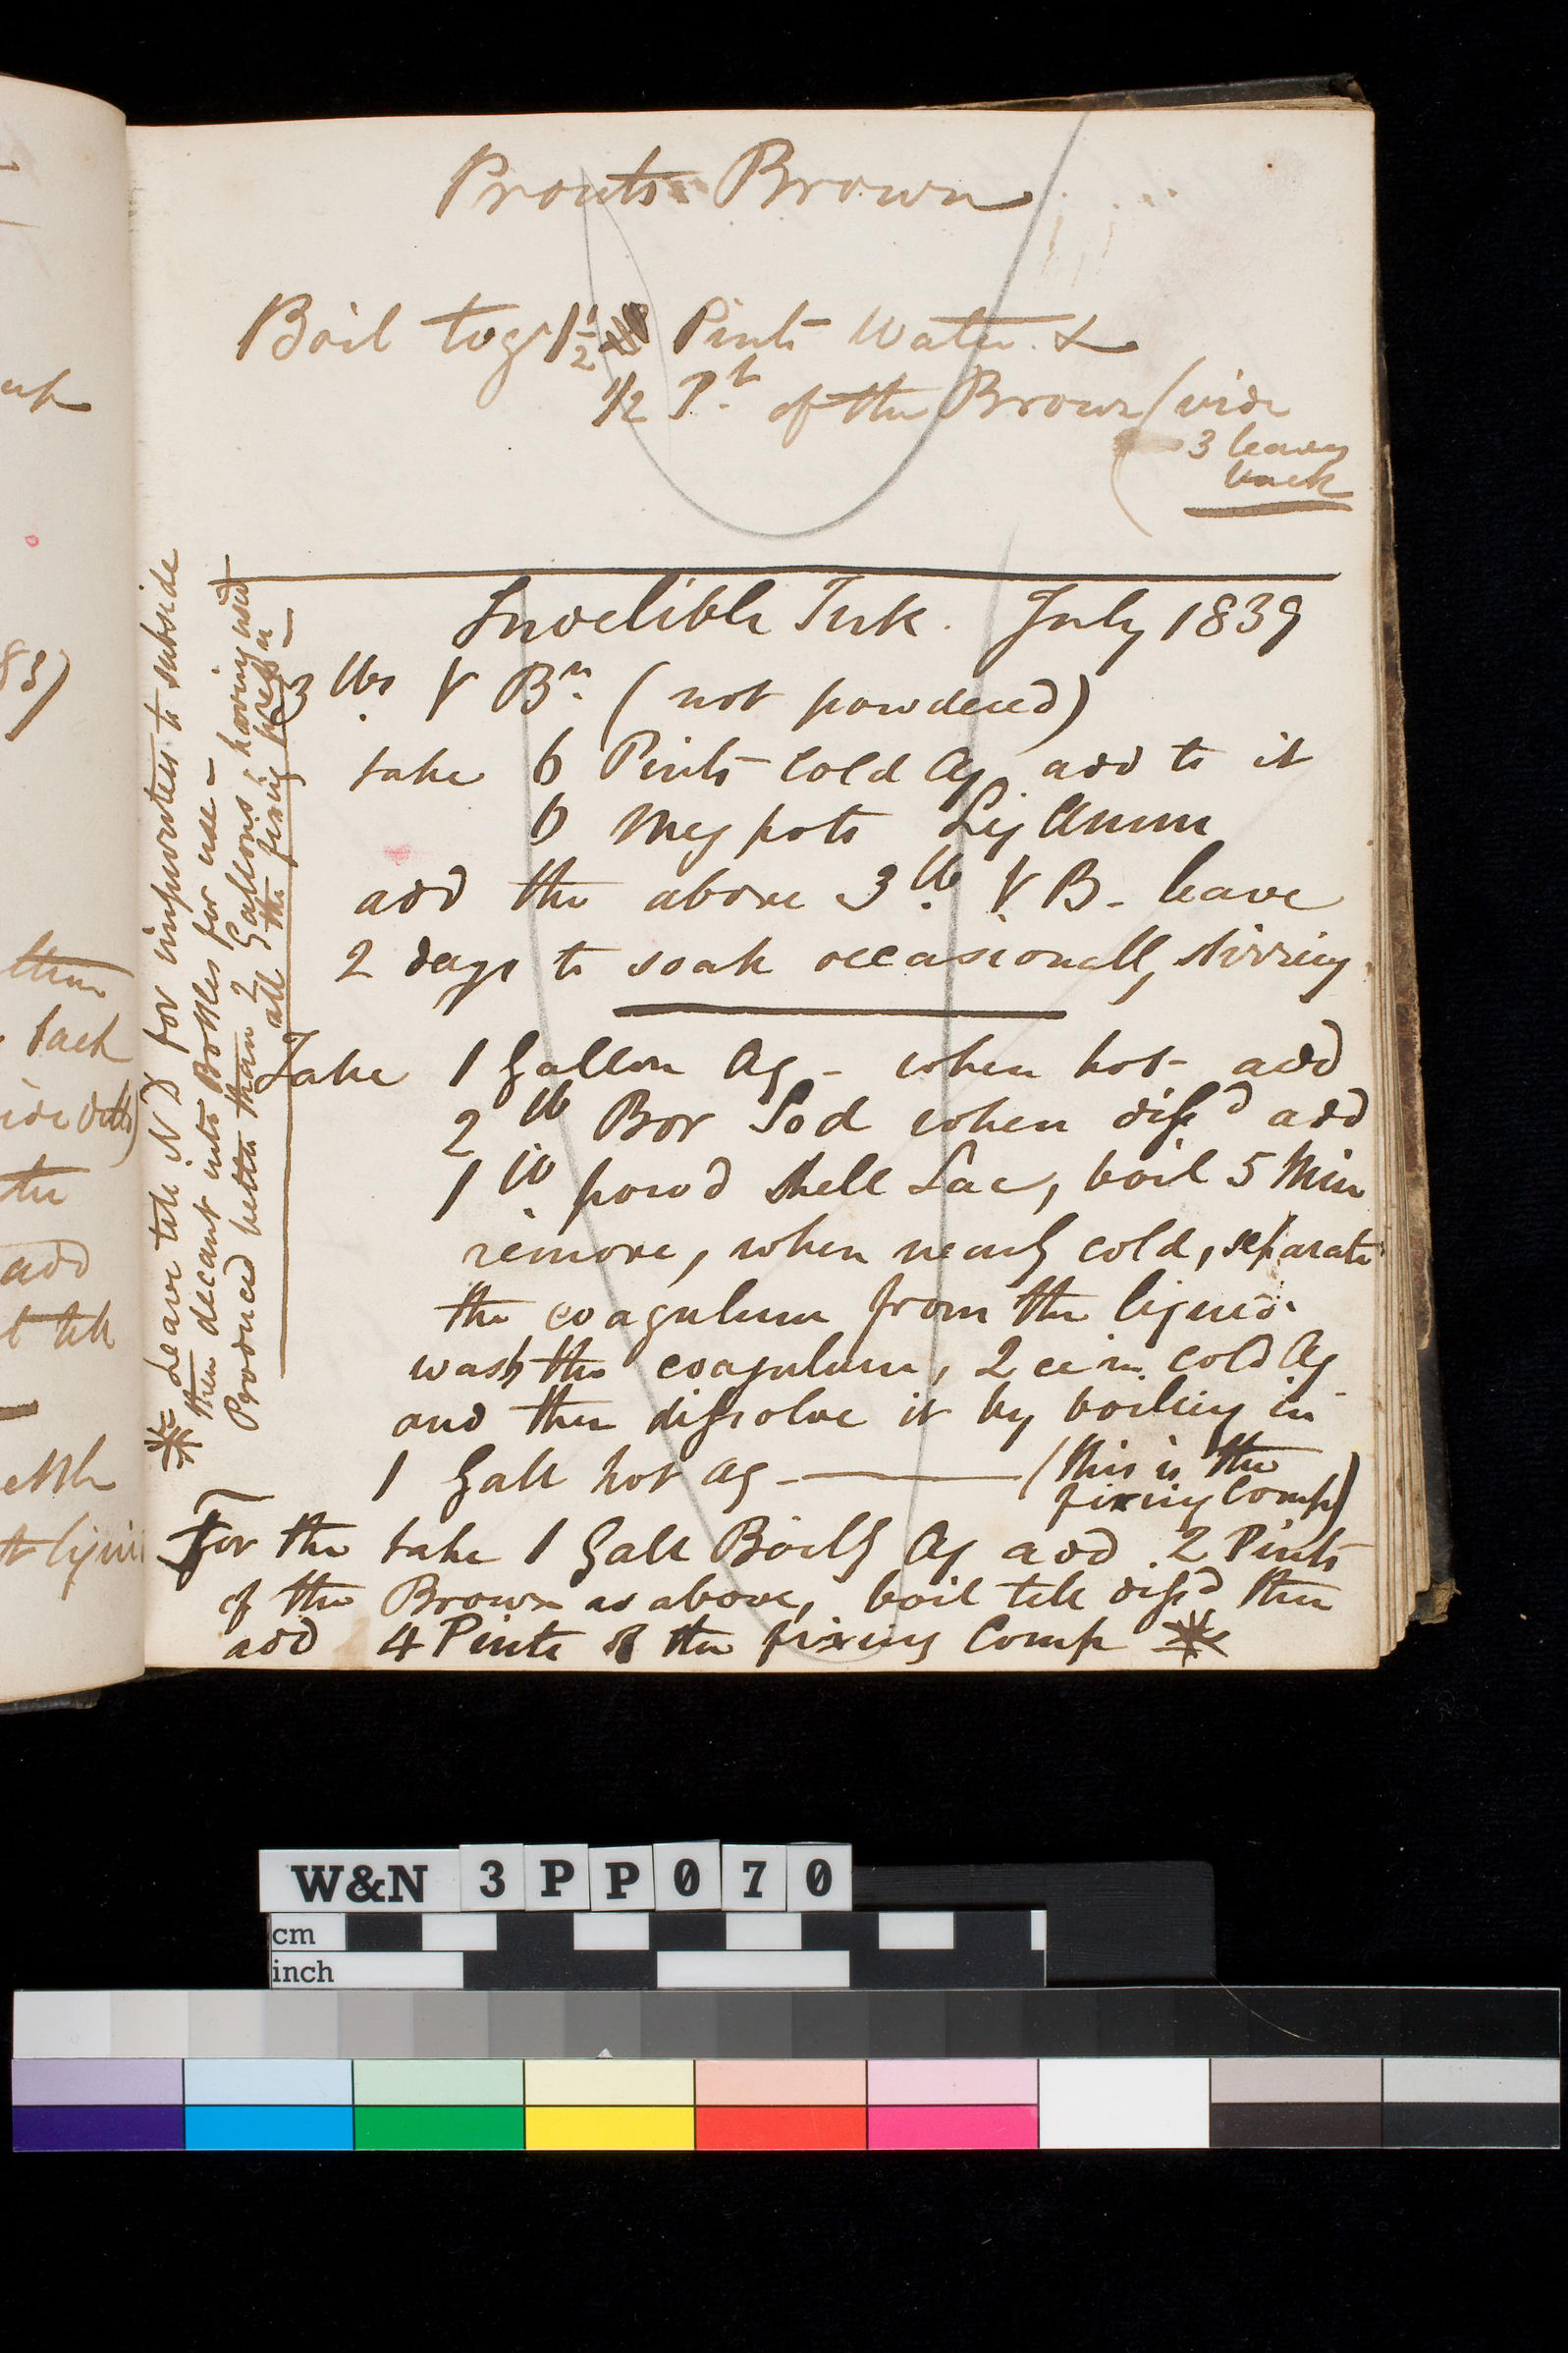 Prouts Brown
Boil togr 1 1/2 Pints Water &
1/2 Pt of the Brown (vide
3 leaves
back
Indelible Ink. July 1839
3 lbs V Bn (not powdered)
take 6 Pints cold Aq add to it
6 Meg pots Liq Amm
add the above 3 lb V B - leave
2 days to soak occasionally stirring.
Take 1 Gallon Aq - when hot add
2 lb Bor Sod when disd add
1 lb powd Shell Lac, boil 5 Min
remove, when nearly cold, separate
the coagulum from the liquid.
wash the coagulum, 2 ce in cold Aq
and then dissolve it by boiling in
1 Gall hot Aq - (this is the
fixing Comp)
For the take 1 Gall Boilg Aq add 2 Pints
of the Brown as above, boil till disd then
add 4 Pints of the fixing Comp *
* Leave till N D for impurities to subside
then decant into Bottles for use -
Produced better than 2 Gallons, having used
all the fixing
them
back
vide
the
add
till
83)
W&N 3PP070
cm
inch